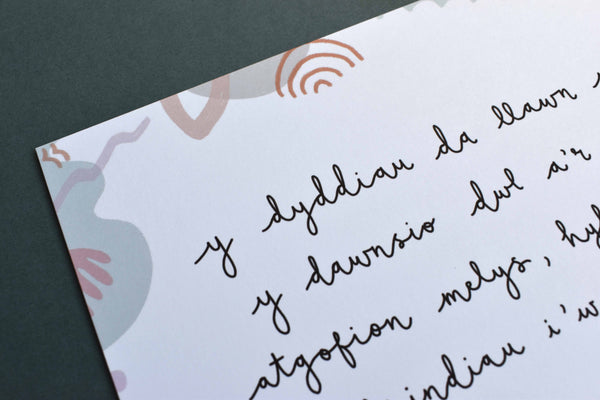 y dyddiau da llawn
y dawnsio dwl a'r
atgofion melys,